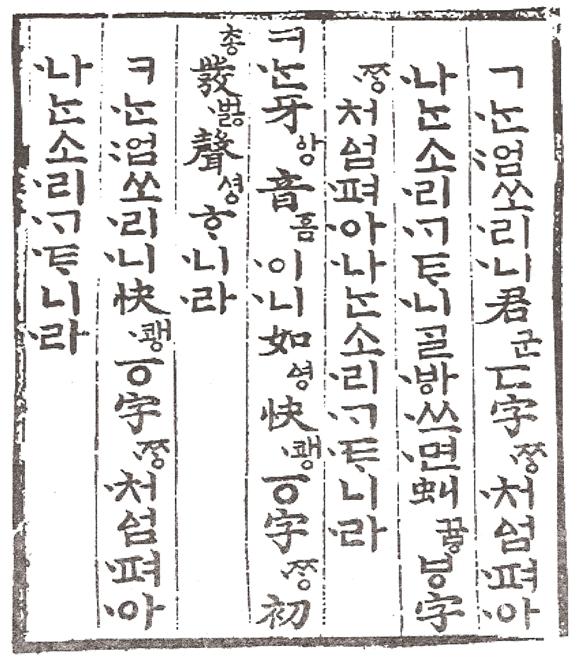 ㄱᄂᆞᆫ엄쏘리니君군ㄷ字ᄍᆞᆼ처ᅀᅥᆷ펴아
나ᄂᆞᆫ소리ᄀᆞᄐᆞ니ᄀᆞᆯᄫᅡ쓰면虯뀨ᇢㅸ字
ᄍᆞᆼ처ᅀᅥᆷ펴아나ᄂᆞᆫ소리ᄀᆞᄐᆞ니라
ㅋᄂᆞᆫ牙ᅌᅡᆼ音ᅙᅳᆷ이니如ᅀᅧᆼ快쾡ㆆ字ᄍᆞᆼ初
총發버ᇙ聲셩ᄒᆞ니라
ㅋᄂᆞᆫ엄쏘리니快쾡ㆆ字ᄍᆞᆼ처ᅀᅥᆷ펴아
나ᄂᆞᆫ소리ᄀᆞᄐᆞ니라